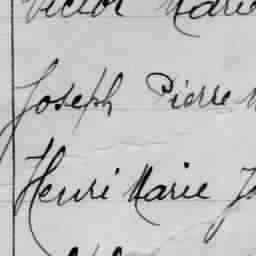 Victor Marie
Joseph Pierre
Henri Marie